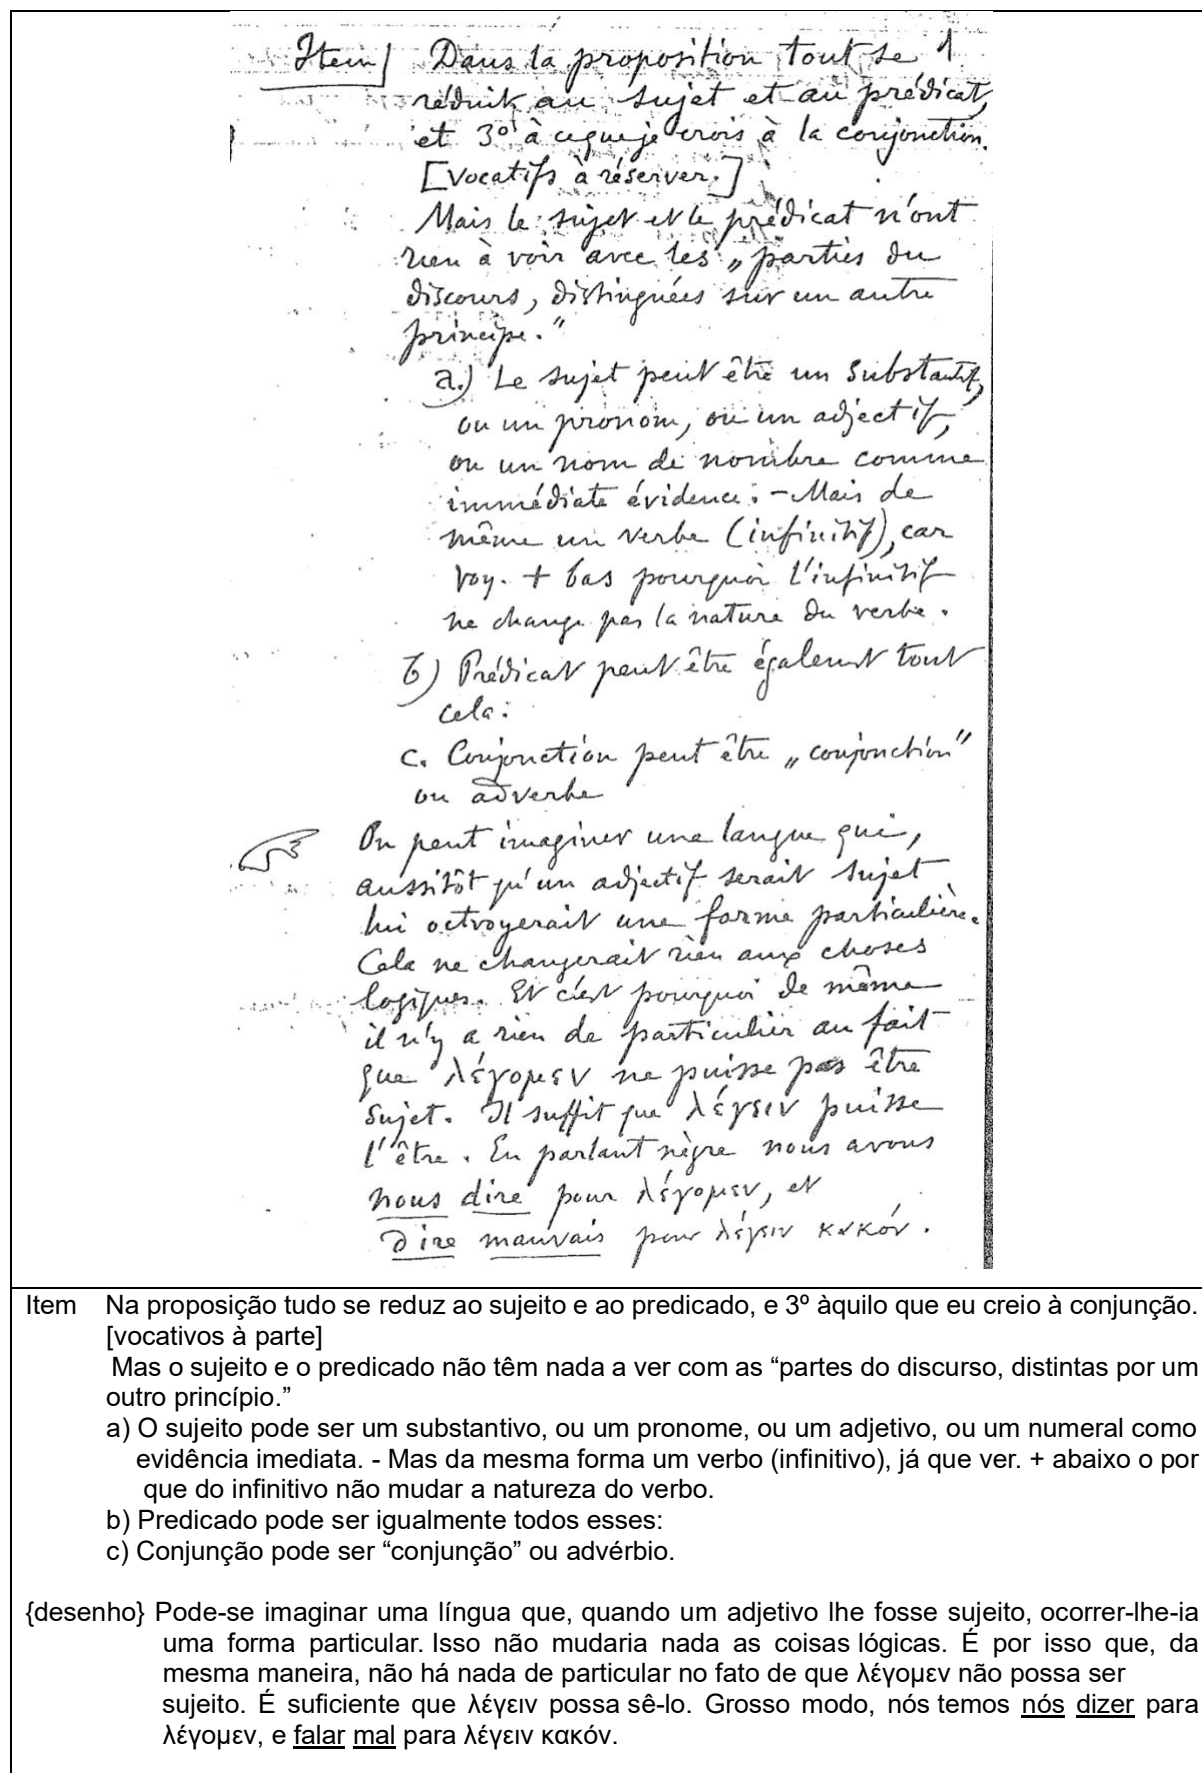 Item Dans la proposition tout se
réduit au sujet et au prédicat,
et 3º à ce que je crois à la conjonction.
[Vocatifs à réserver.]
Mais le sujet et le prédicat n'ont
rien à voir avec les „parties du
discours, distinguées sur un autre
principe."
a.) Le sujet peut être un substantif,
ou un pronom, ou un adjectif,
ou un nom de nombre comme
immédiate évidence: - Mais de
même un verbe (infinitif), car
voy. + bas pourquoi l'infinitif
ne change pas la nature du verbe.
b) Prédicat peut être égalemt tout
cela:
c. Conjonction peut être „conjonction"
ou adverbe
On peut imaginer une langue qui,
aussitôt qu'un adjectif serait sujet
lui octroyerait une forme particulière.
Cela ne changerait rien aux choses
logiques. Et c'est pourquoi de même
il n'y a rien de particulier au fait
que λέγομεν ne puisse pas être
sujet. Il suffit que λέγειν puisse
l'être. En parlant nègre nous avons
nous dire pour λέγομεν, et
dire mauvais pour λέγειν κακόν.
Item Na proposição tudo se reduz ao sujeito e ao predicado, e 3º àquilo que eu creio à conjunção.
[vocativos à parte]
Mas o sujeito e o predicado não têm nada a ver com as “partes do discurso, distintas por um
outro princípio.”
a) O sujeito pode ser um substantivo, ou um pronome, ou um adjetivo, ou um numeral como
evidência imediata. - Mas da mesma forma um verbo (infinitivo), já que ver. + abaixo o por
que do infinitivo não mudar a natureza do verbo.
b) Predicado pode ser igualmente todos esses:
c) Conjunção pode ser “conjunção” ou advérbio.
{desenho} Pode-se imaginar uma língua que, quando um adjetivo lhe fosse sujeito, ocorrer-lhe-ia
uma forma particular. Isso não mudaria nada as coisas lógicas. É por isso que, da
mesma maneira, não há nada de particular no fato de que λέγομεν não possa ser
sujeito. É suficiente que λέγειν possa sê-lo. Grosso modo, nós temos nós dizer para
λέγομεν, e falar mal para λέγειν κακόν.